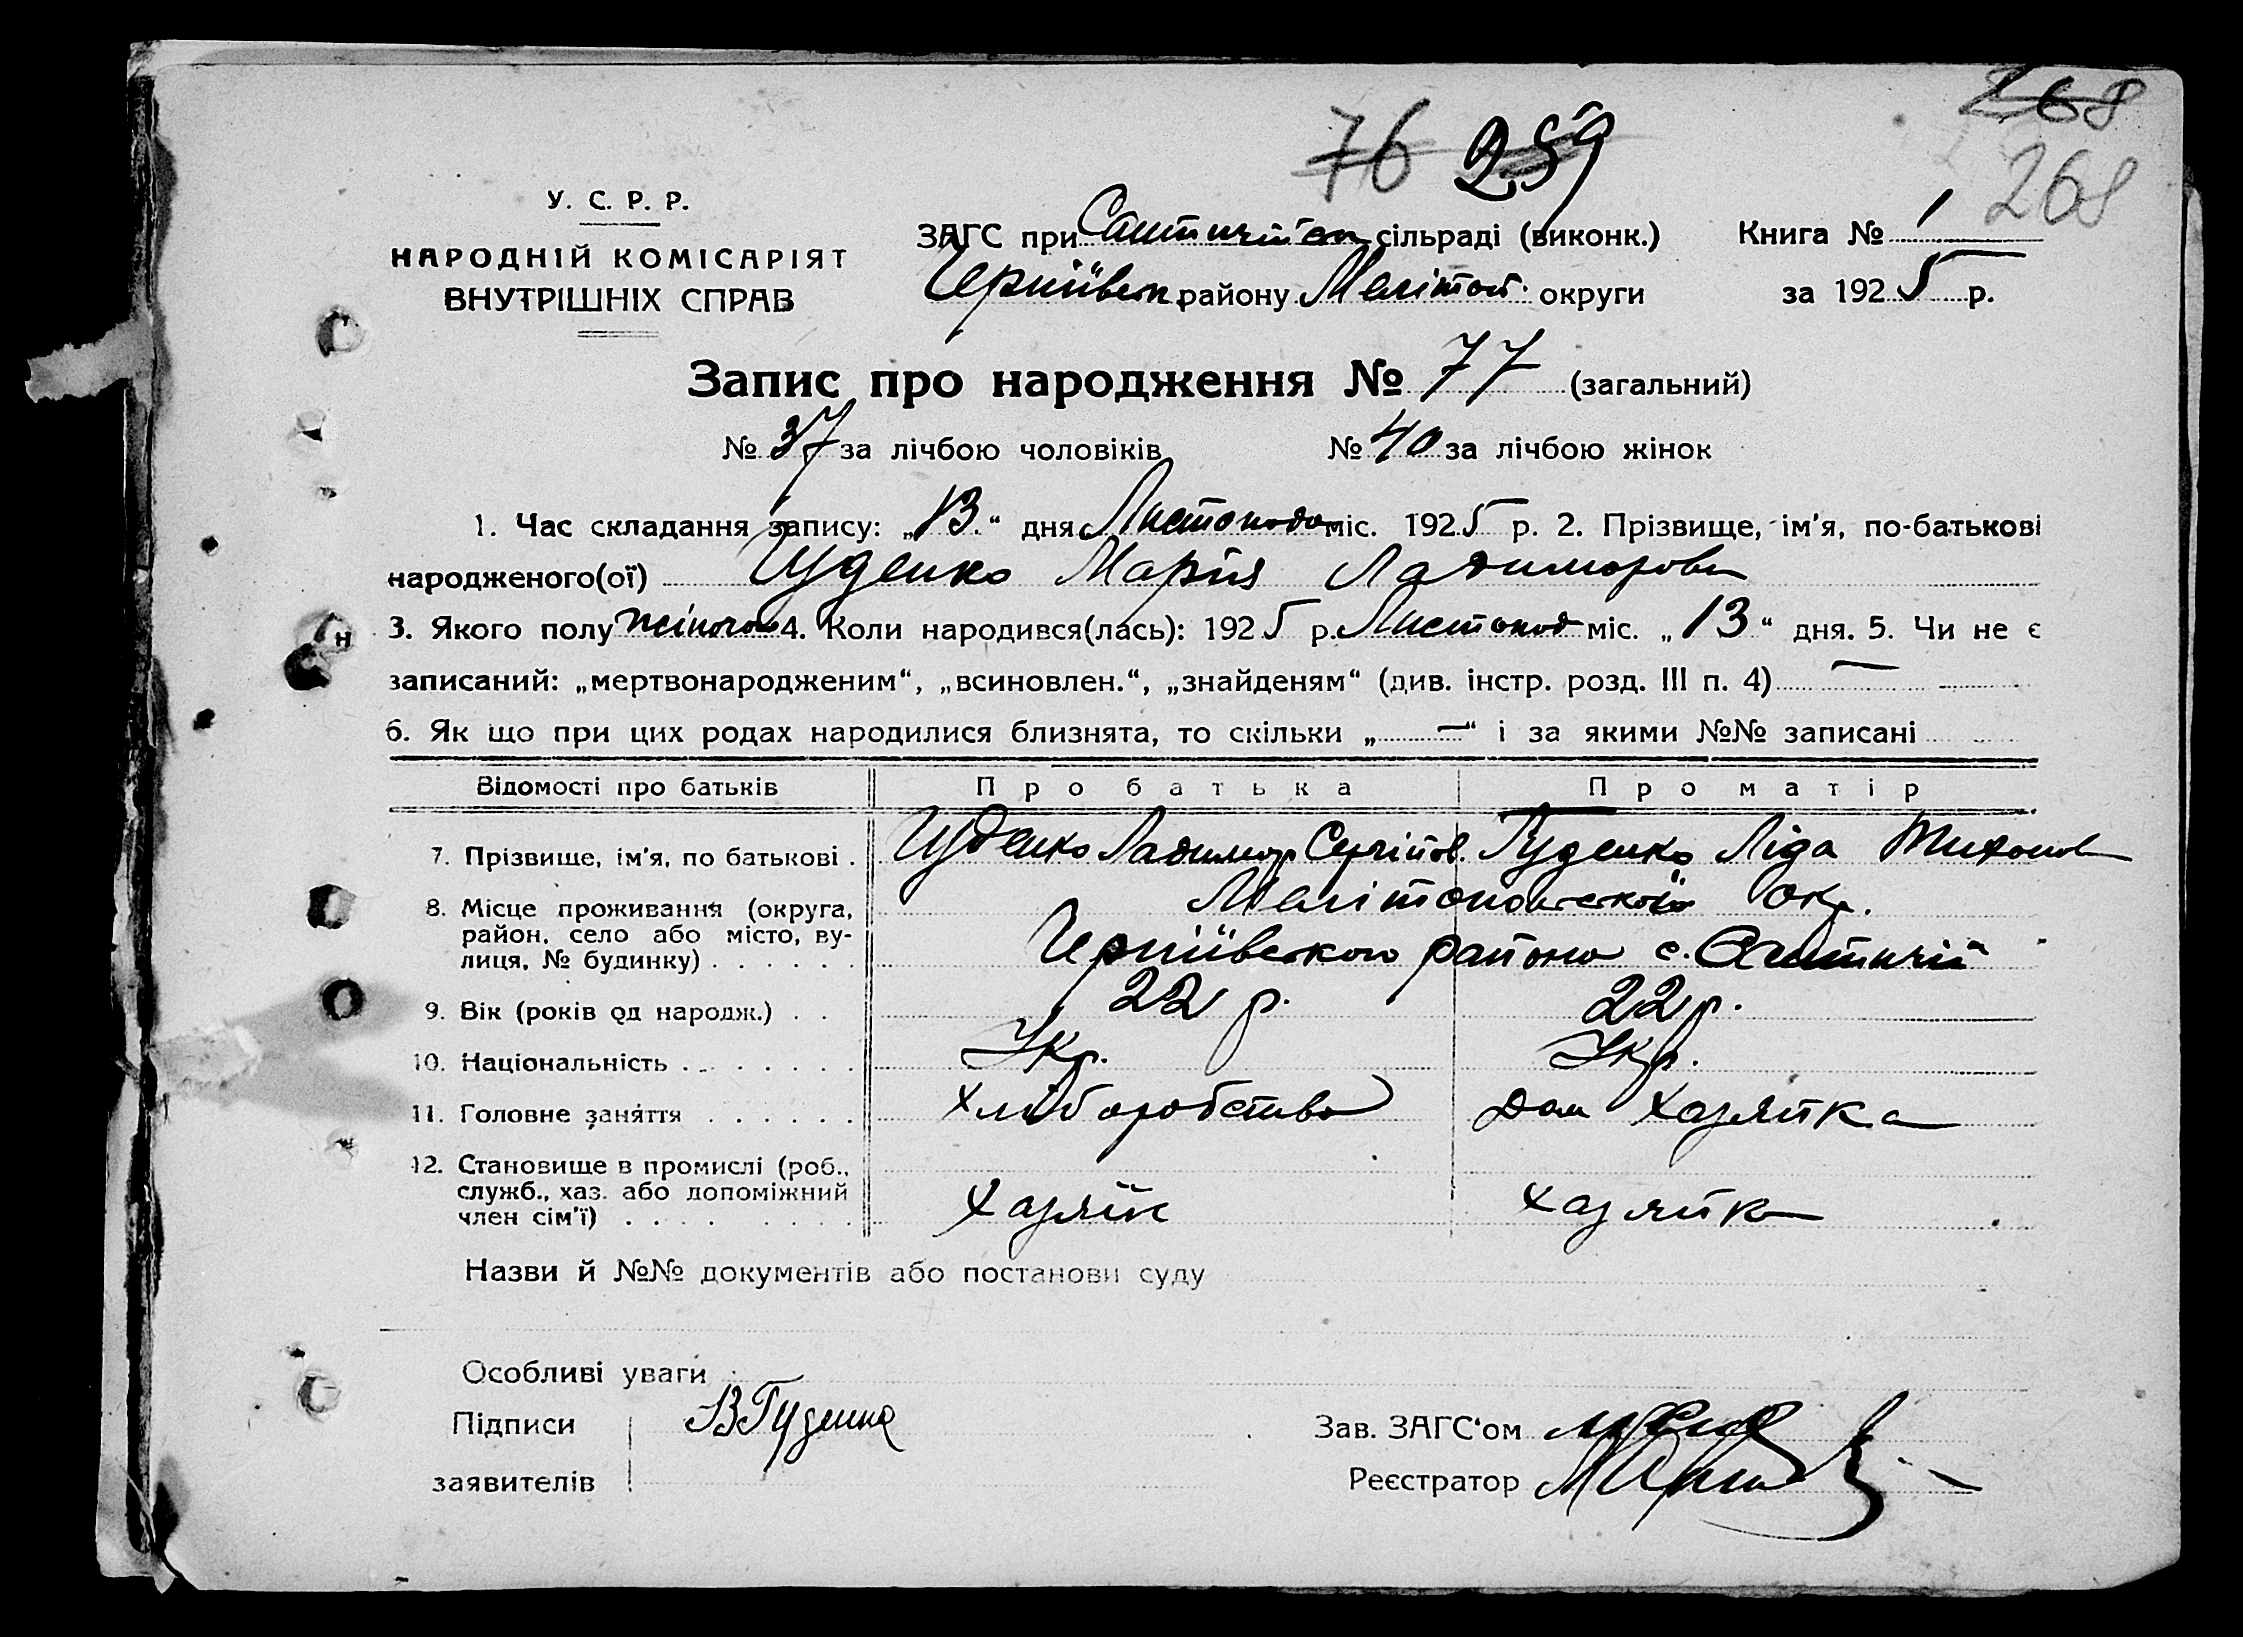 268
76 259 268
У. С. Р. Р.
НАРОДНІЙ КОМІСАРІЯТ
ВНУТРІШНІХ СПРАВ
ЗАГС при сільраді (виконк.) Книга № 1
району Мелітоп. округи за 1925 р.
Запис про народження № 77 (загальний)
№ 37 за лічбою чоловіків № 40 за лічбою жінок
1. Час складання запису: „13“ дня Листопада міс. 1925 р. 2. Прізвище, ім'я, по-батькові
народженого(ої) Гуденко Марія Ладимирова
3. Якого полу жіночого 4. Коли народився(лась): 1925 р. Листопад міс. „13“ дня. 5. Чи не є
записаний: „мертвонародженим“, „всиновлен.“, „знайденям“ (див. інстр. розд. III п. 4) —
6. Як що при цих родах народилися близнята, то скільки „—“ і за якими №№ записані
Відомості про батьків Про батька Про матір
7. Прізвище, ім'я, по батькові . Гуденко Ладимир Сергійов. Гуденко Ліда Тихонов
8. Місце проживання (округа, Мелітопольської окр.
район, село або місто, ву- району с.
лиця, № будинку) . . . . . .
9. Вік (років од народж.) . . 22 р. 22 р.
10. Національність . . . . . . . Укр. Укр.
11. Головне заняття . . . . . . Хліборобство Дом Хазяйка
12. Становище в промислі (роб.,
служб., хаз. або допоміжний
член сім'ї) . . . . . . . . Хазяїн Хазяйка
Назви й №№ документів або постанови суду
Особливі уваги
Підписи В Гуденко Зав. ЗАГС'ом
заявителів Реєстратор